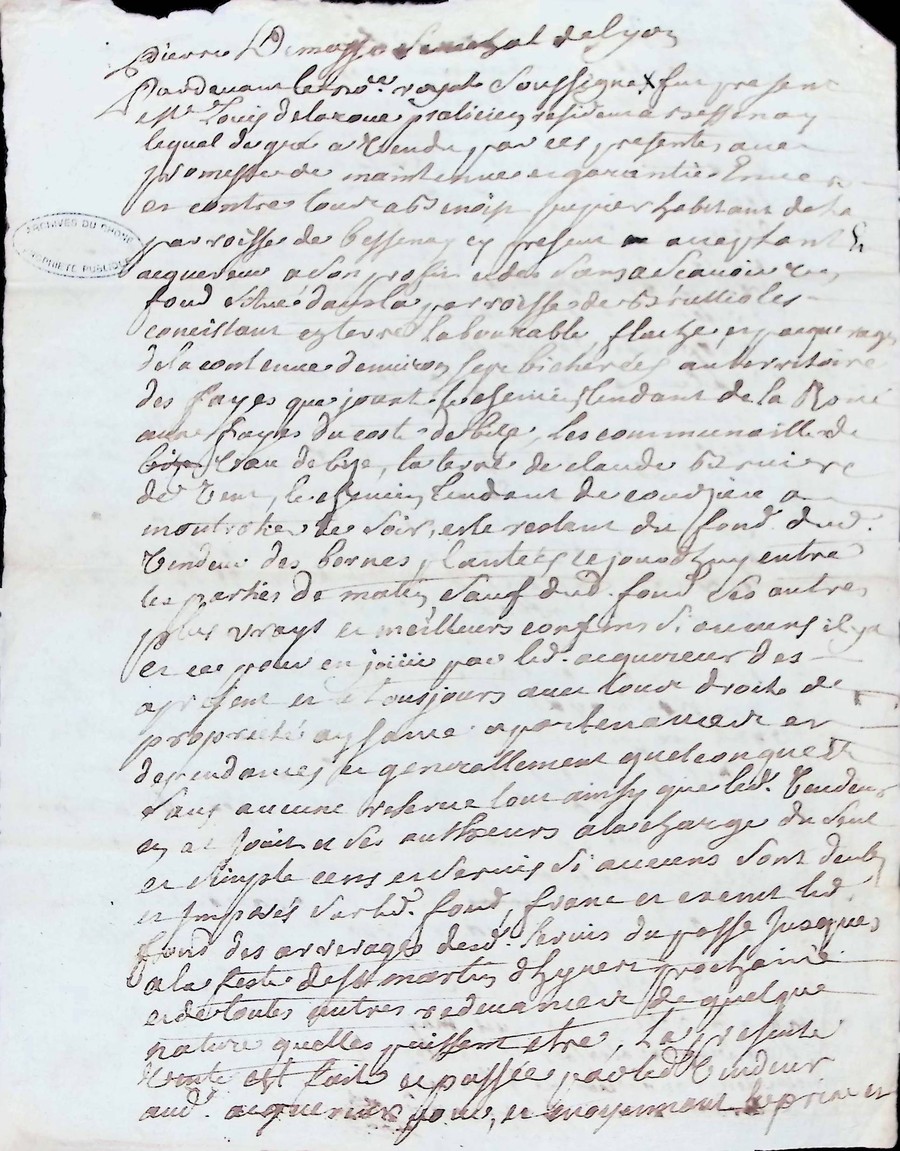 Pierre Dimasse senechal de Lyon
Pardevant le no.re royal soussigne fut present
s.r Louis Delaroue praticien resident a Bessenay
lequel de gré a vendu par ces presentes avec
promesse de maintenue et garantie envers
et contre tous a Benoist papier habitant de la
parroisse de bessenay cy present acceptant
acquereur a son profit et des siens a scavoir un
fond situé dans la parroisse de Brullioles
concistant en terre labourable, flache, et pacquerage
de la contenue d'environ sept bicherées au territoire
des fayes que joint le chemin tendant de la Roue
aux fayes du costé de bize, les communaille de
trau de bize, la terre de claude Bruiere
de vent, le chemin tendant de coursiere a
montrotier de soir, et le restant du fond dud.
vendeur des bornes plantées cejourdhuy entre
les parties de matin sauf dud. fond ses autres
plus vrays et meilleurs confins si aucuns il y a
et ce pour en jouir par led. acquereur des
apresent et a tousjours avec tous droits de
propriété aysance apartenances et
dependances et generallement quelconques
sans aucune reserve tout ainsy que led. vendeur
en at jouit et ses autheurs a la charge du seul
et simple cens et servis si aucuns sont deubs
et imposés sur led. fond, franc et exemt led.
fond des arrerages desd. servis du passé jusques
a la feste de st martin d'hyvert prochaine
et de toutes autres redevances de quelque
nature quelles puissent etre, La presente
vente est faite et passée par led. vendeur
aud. acquereur pour, et moyennant le prix et
ARCHIVES DU RHONE
PROPRIETE PUBLIQUE